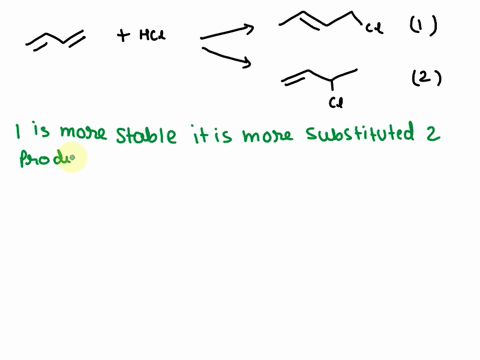 + HCl
Cl (1)
(2)
Cl
1 is more stable it is more substituted 2
Prod